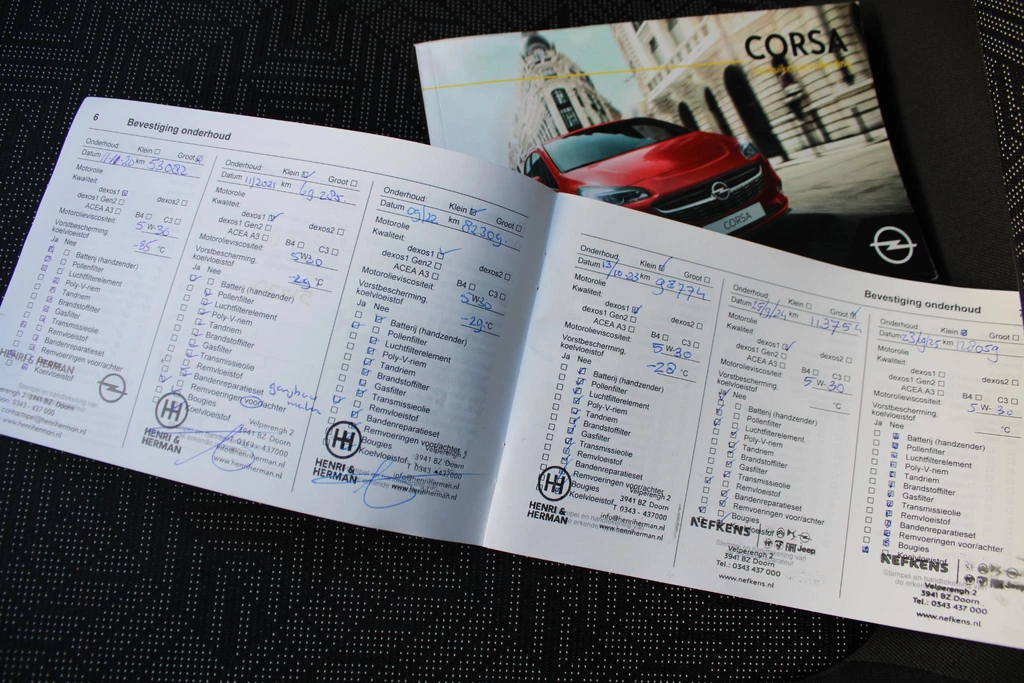 CORSA
CORSA
6 Bevestiging onderhoud
Onderhoud: Klein Groot
Datum km 53082
Motorolie
Kwaliteit:
dexos1
dexos1 Gen2
ACEA A3
Motorolieviscositeit: B4 C3
5 W-30
Vorstbescherming, koelvloeistof
-35 °C
Ja Nee
Batterij (handzender)
Pollenfilter
Luchtfilterelement
Poly-V-riem
Tandriem
Brandstoffilter
Gasfilter
Transmissieolie
Remvloeistof
Bandenreparatieset
Remvoeringen voor/achter
Koelvloeistof
HENRI & HERMAN
3941 BZ Doorn
0343 - 437000
www.henriherman.nl
Onderhoud: Klein Groot
Datum 11/2021 km
Motorolie
Kwaliteit:
dexos1 dexos2
dexos1 Gen2
ACEA A3 B4 C3
Motorolieviscositeit: 5W30
Vorstbescherming, koelvloeistof
°C
Ja Nee
Batterij (handzender)
Pollenfilter
Luchtfilterelement
Poly-V-riem
Tandriem
Brandstoffilter
Gasfilter
Transmissieolie
Remvloeistof
Bandenreparatieset
Remvoeringen voor/achter
Bougies
Koelvloeistof
HENRI & HERMAN
Velperengh 2
3941 BZ Doorn
T 0343 - 437000
info@henriherman.nl
www.henriherman.nl
Onderhoud: Klein Groot
Datum 09/22 km 82309
Motorolie
Kwaliteit:
dexos1 dexos2
dexos1 Gen2
ACEA A3 B4 C3
Motorolieviscositeit: 5W-30
Vorstbescherming, koelvloeistof
-29 °C
Ja Nee
Batterij (handzender)
Pollenfilter
Luchtfilterelement
Poly-V-riem
Tandriem
Brandstoffilter
Gasfilter
Transmissieolie
Remvloeistof
Bandenreparatieset
Remvoeringen voor/achter
Bougies
Koelvloeistof
HENRI & HERMAN
Velperengh 2
3941 BZ Doorn
T 0343 - 437000
info@henriherman.nl
www.henriherman.nl
Bevestiging onderhoud
Onderhoud: Klein Groot
Datum 13/10-23 km 98774
Motorolie
Kwaliteit:
dexos1 dexos2
dexos1 Gen2
ACEA A3 B4 C3
Motorolieviscositeit: 5W-30
Vorstbescherming, koelvloeistof
-28 °C
Ja Nee
Batterij (handzender)
Pollenfilter
Luchtfilterelement
Poly-V-riem
Tandriem
Brandstoffilter
Gasfilter
Transmissieolie
Remvloeistof
Bandenreparatieset
Remvoeringen voor/achter
Bougies
Koelvloeistof
HENRI & HERMAN
Velperengh 2
3941 BZ Doorn
T 0343 - 437000
info@henriherman.nl
www.henriherman.nl
Onderhoud: Klein Groot
Datum 25/9/24 km 113754
Motorolie
Kwaliteit:
dexos1 dexos2
dexos1 Gen2
ACEA A3 B4 C3
Motorolieviscositeit: 5 W-30
Vorstbescherming, koelvloeistof
°C
Ja Nee
Batterij (handzender)
Pollenfilter
Luchtfilterelement
Poly-V-riem
Tandriem
Brandstoffilter
Gasfilter
Transmissieolie
Remvloeistof
Bandenreparatieset
Remvoeringen voor/achter
Bougies
Koelvloeistof
NEFKENS
Jeep
Velperengh 2
3941 BZ Doorn
Tel.: 0343 437 000
www.nefkens.nl
Onderhoud: Klein Groot
Datum 23/9/25 km 128059
Motorolie
Kwaliteit:
dexos1 dexos2
dexos1 Gen2
ACEA A3 B4 C3
Motorolieviscositeit: 5 W-30
Vorstbescherming, koelvloeistof
°C
Ja Nee
Batterij (handzender)
Pollenfilter
Luchtfilterelement
Poly-V-riem
Tandriem
Brandstoffilter
Gasfilter
Transmissieolie
Remvloeistof
Bandenreparatieset
Remvoeringen voor/achter
Bougies
Koelvloeistof
NEFKENS
Jeep
Velperengh 2
3941 BZ Doorn
Tel.: 0343 437 000
www.nefkens.nl